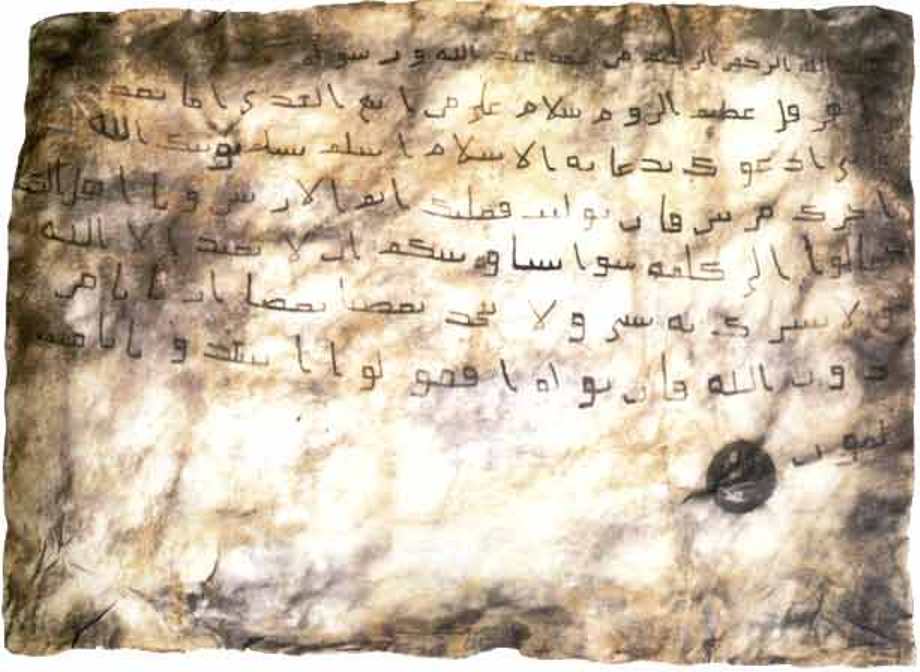 الله الرحمن الرحيم من محمد عبد الله و رسوله
هر قل عظيم الرو م سلام علي من ا تبع الهدى ا ما بعد
ا د عو ك بدعا يه الا سلا م ا سلم تسلم يو تك الله
ا جر ك مر تين فا ن تو ليت فعليك ا ثم ا لا ر يس و يا ا هل الك
تعا لوا ا لى كلمه سوا بيننا و بينكم ا ن لا نعبد ا لا ا لله
و لا نشر ك به شى و لا يتخذ بعضنا بعضا ا ر با با من
د و ن الله فا ن تو لو ا فقو لو ا ا شهد و ا با نا مس
لمو ن